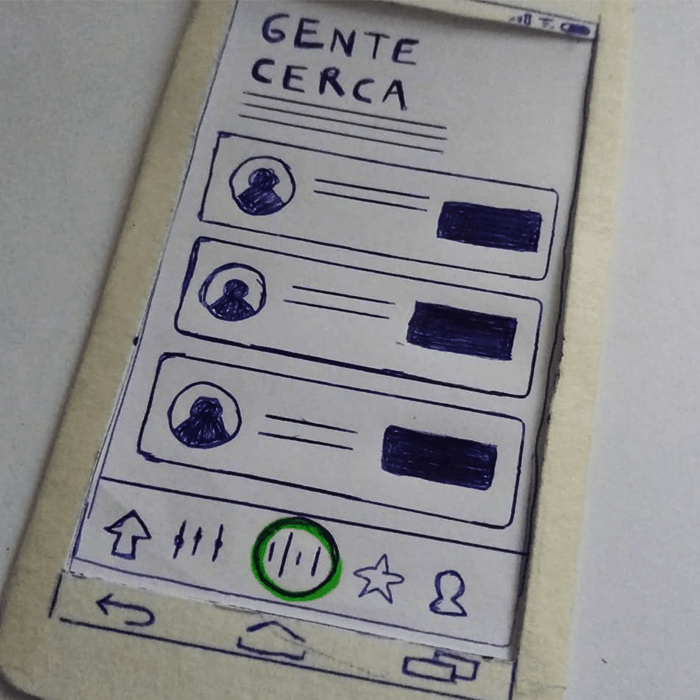 GENTE
CERCA